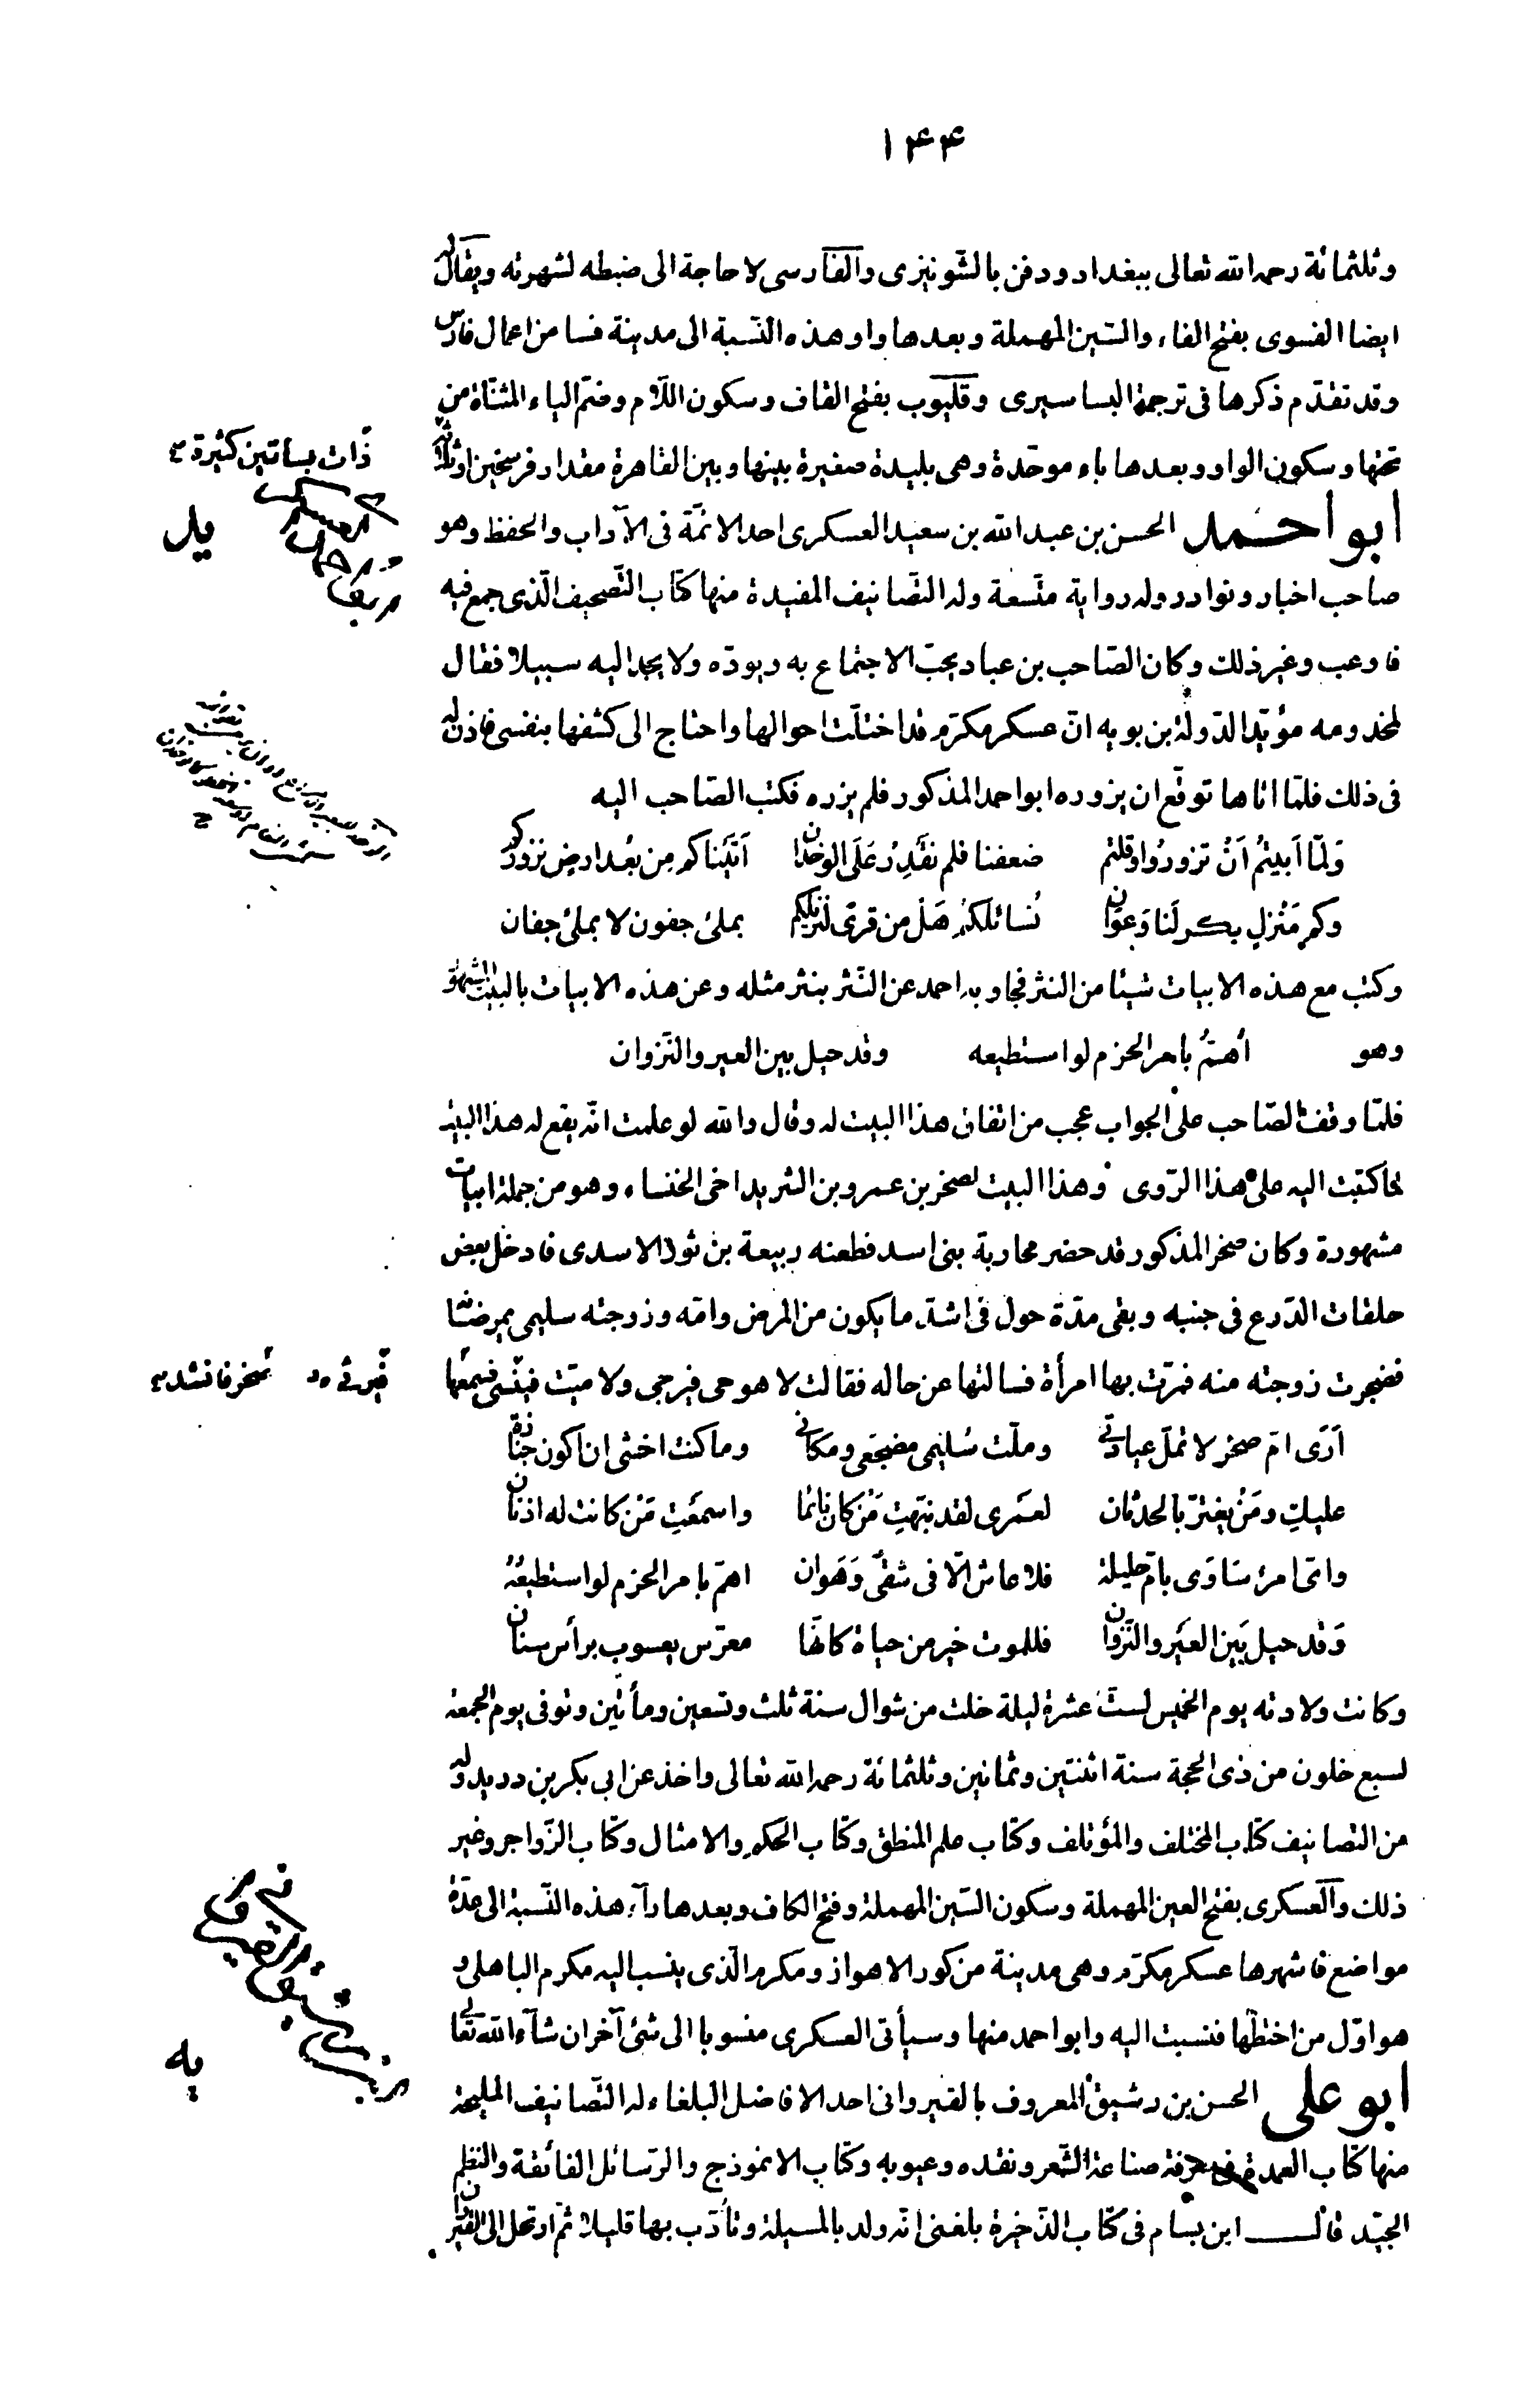 ۱۴۴
وثلثمائة رحمه الله تعالى ببغداد ودفن بالشّونيزى والفارسى لا حاجة الى ضبطه لشهرته ويقال له
ايضا الفسوى بفتح الفاء والسّين المهملة وبعدها واو هذه النّسبة الى مدينة فسا من اعمال فارس
وقد تقدّم ذكرها فى ترجمة البساسيرى وقليوب بفتح القاف وسكون اللّام وضمّ الياء المثنّاة من
تحتها وسكون الواو وبعدها باء موحّدة وهى بليدة صغيرة بينها وبين القاهرة مقدار فرسخين او ثلاثة
ذات بساتين كثيرة
ابو احمد الحسن بن عبد الله بن سعيد العسكرى احد الائمّة فى الآداب والحفظ وهو
يد
صاحب اخبار ونوادر وله رواية متّسعة وله التّصانيف المفيدة منها كتاب التّصحيف الّذى جمع فيه
فاوعب وغير ذلك وكان الصّاحب بن عباد يحبّ الاجتماع به ويودّه ولا يجد اليه سبيلا فقال
لمخدومه مؤيّد الدّولة بن بويه انّ عسكر مكرّم قد اختلّت احوالها واحتاج الى كشفها بنفسى فاذن له
فى ذلك فلمّا اتاها توقّع ان يزوره ابو احمد المذكور فلم يزره فكتب الصّاحب اليه
وَلمّا اَبيتُم اَنْ تزورُوا وقلتم ضعفنا فلم نقدِرْ عَلَى الوخدان اَتيناكم مِن بعُد ارضٍ نزوركم
وكم مَنْزلٍ بكر لَنا وَعوان نُسائلكم هَلْ من قرًى لنزيلكم بملئ جفون لا بملئ جفان
وكتب مع هذه الابيات شيئا من النثر فجاوبه احمد عن النّثر بنثر مثله وعن هذه الابيات بالبيت المشهور
وهو أهمُّ بأمر الحزم لو استطيعه وقد حيل بين العير والنّزوان
فلمّا وقف الصّاحب على الجواب عجب من اتفاق هذا البيت له وقال والله لو علمت انّه يقع له هذا البيت
لما كتبت اليه على هذا الرّوى وهذا البيت لصخر بن عمرو بن الشريد اخى الخنساء وهو من جملة ابيات
مشهورة وكان صخر المذكور قد حضر محاربة بنى اسد فطعنه ربيعة بن ثور الاسدى فادخل بعض
حلقات الدّرع فى جنبه وبقى مدّة حول فى اشدّ ما يكون من المرض وامّه وزوجته سليمى يمرضانه
فضجرت زوجته منه فمرّت بها امرأة فسالتها عن حاله فقالت لا هو حى فيرجى ولا ميّت فينسى فسمعها
صخر فانشد
اَرَى امّ صخر لا تملّ عيادتى وملّت سُليمى مضجعى ومكانى وما كنت اخشى ان اكون جنازة
عليكِ ومَنْ يغترّ بالحدثان لعَمرى لقد نبّهتِ مَنْ كان نائما واسمعَتِ مَن كانت له اذنان
واىّ امرءٍ سَاوَى بامّ حليلة فلا عاش الّا فى شقًى وَهَوان اهمّ بامر الحزم لو استطيعُهُ
وَقد حيل بَين العَير والنّزوان فللموت خير من حياة كانّها معرّس يعسوب برأس سنان
وكانت ولادته يوم الخميس لستّ عشرة ليلة خلت من شوال سنة ثلث وتسعين ومأتين وتوفى يوم الجمعة
لسبع خلون من ذى الحجة سنة اثنتين وثمانين وثلثمائة رحمه الله تعالى واخذ عن ابى بكر بن دريد وله
من التصانيف كتاب المختلف والمؤتلف وكتاب علم المنطق وكتاب الحكم والامثال وكتاب الزّواجر وغير
ذلك والعسكرى بفتح العين المهملة وسكون السّين المهملة وفتح الكاف وبعدها راء هذه النّسبة الى عدّة
مواضع فاشهرها عسكر مكرّم وهى مدينة من كور الاهواز ومكرم الّذى ينسب اليه مكرم الباهلى و
هو اوّل من اختطّها فنسبت اليه وابو احمد منها وسيأتى العسكرى منسوبا الى شئ آخر ان شاء الله تعالى
ابو على الحسن بن رشيق المعروف بالقيروانى احد الافاضل البلغاء له التّصانيف المليحة
يه
منها كتاب العمدة فى معرفة صناعة الشّعر ونقده وعيوبه وكتاب الانموذج والرّسائل الفائقة والنظم
الجيّد قال ابن بسّام فى كتاب الذّخيرة بلغنى انّه ولد بالمسيلة وتأدّب بها قليلا ثمّ ارتحل الى القيروان